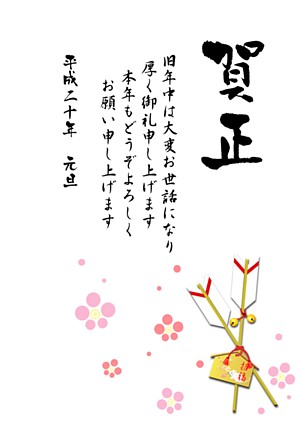 賀正
旧年中は大変お世話になり
厚く御礼申し上げます
本年もどうぞよろしく
お願い申し上げます
平成二十年 元旦